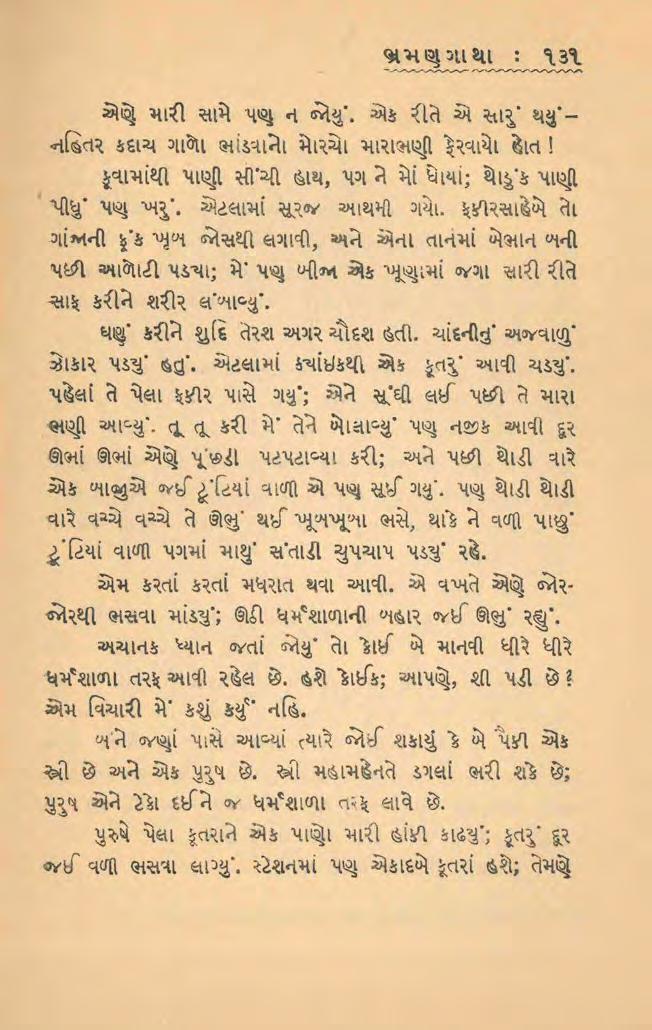 ભ્રમણગાથા : ૧૩૧
એણે મારી સામે પણ ન જોયું. એક રીતે એ સારું થયું–
નહિતર કદાચ ગાળો ભાંડવાનો મોરચો મારાભણી ફેરવાયો હોત !
કૂવામાંથી પાણી સીંચી હાથ, પગ ને મોં ધોયાં; થોડુંક પાણી
પીધું પણ ખરું. એટલામાં સૂરજ આથમી ગયો. ફકીરસાહેબે તો
ગાંજાની ફૂંક ખૂબ જોસથી લગાવી, અને એના તાનમાં બેભાન બની
પછી આળોટી પડયા; મેં પણ બીજા એક ખૂણામાં જગા સારી રીતે
સાફ કરીને શરીર લંબાવ્યું.
ઘણું કરીને શુદિ તેરશ અગર ચૌદશ હતી. ચાંદનીનું અજવાળું
ઝોકાર પડયું હતું. એટલામાં કયાંઇકથી એક કૂતરું આવી ચડયું.
પહેલાં તે પેલા ફકીર પાસે ગયું; એને સૂંઘી લઈ પછી તે મારા
ભણી આવ્યું. તૂ તૂ કરી મેં તેને બોલાવ્યું પણ નજીક આવી દૂર
ઊભાં ઊભાં એણે પૂંછડી પટપટાવ્યા કરી; અને પછી થોડી વારે
એક બાજુએ જઈ ટૂંટિયાં વાળી એ પણ સૂઈ ગયું. પણ થોડી થોડી
વારે વચ્ચે વચ્ચે તે ઊભું થઈ ખૂબખૂબા ભસે, થાકે ને વળી પાછું
ટૂંટિયાં વાળી પગમાં માથું સંતાડી ચુપચાપ પડયું રહે.
એમ કરતાં કરતાં મધરાત થવા આવી. એ વખતે એણે જોર-
જોરથી ભસવા માંડયું; ઊઠી ધર્મશાળાની બહાર જઈ ઊભું રહ્યું.
અચાનક ધ્યાન જતાં જોયું તો કોઈ બે માનવી ધીરે ધીરે
ધર્મશાળા તરફ આવી રહેલ છે. હશે કોઈક; આપણે, શી પડી છે ?
એમ વિચારી મેં કશું કર્યું નહિ.
બંને જણાં પાસે આવ્યાં ત્યારે જોઈ શકાયું કે બે પૈકી એક
સ્ત્રી છે અને એક પુરુષ છે. સ્ત્રી મહામહેનતે ડગલાં ભરી શકે છે;
પુરુષ એને ટેકો દઈને જ ધર્મશાળા તરફ લાવે છે.
પુરુષે પેલા કૂતરાને એક પાણો મારી હાંકી કાઢયું; કૂતરું દૂર
જઈ વળી ભસવા લાગ્યું. સ્ટેશનમાં પણ એકાદબે કૂતરાં હશે; તેમણે